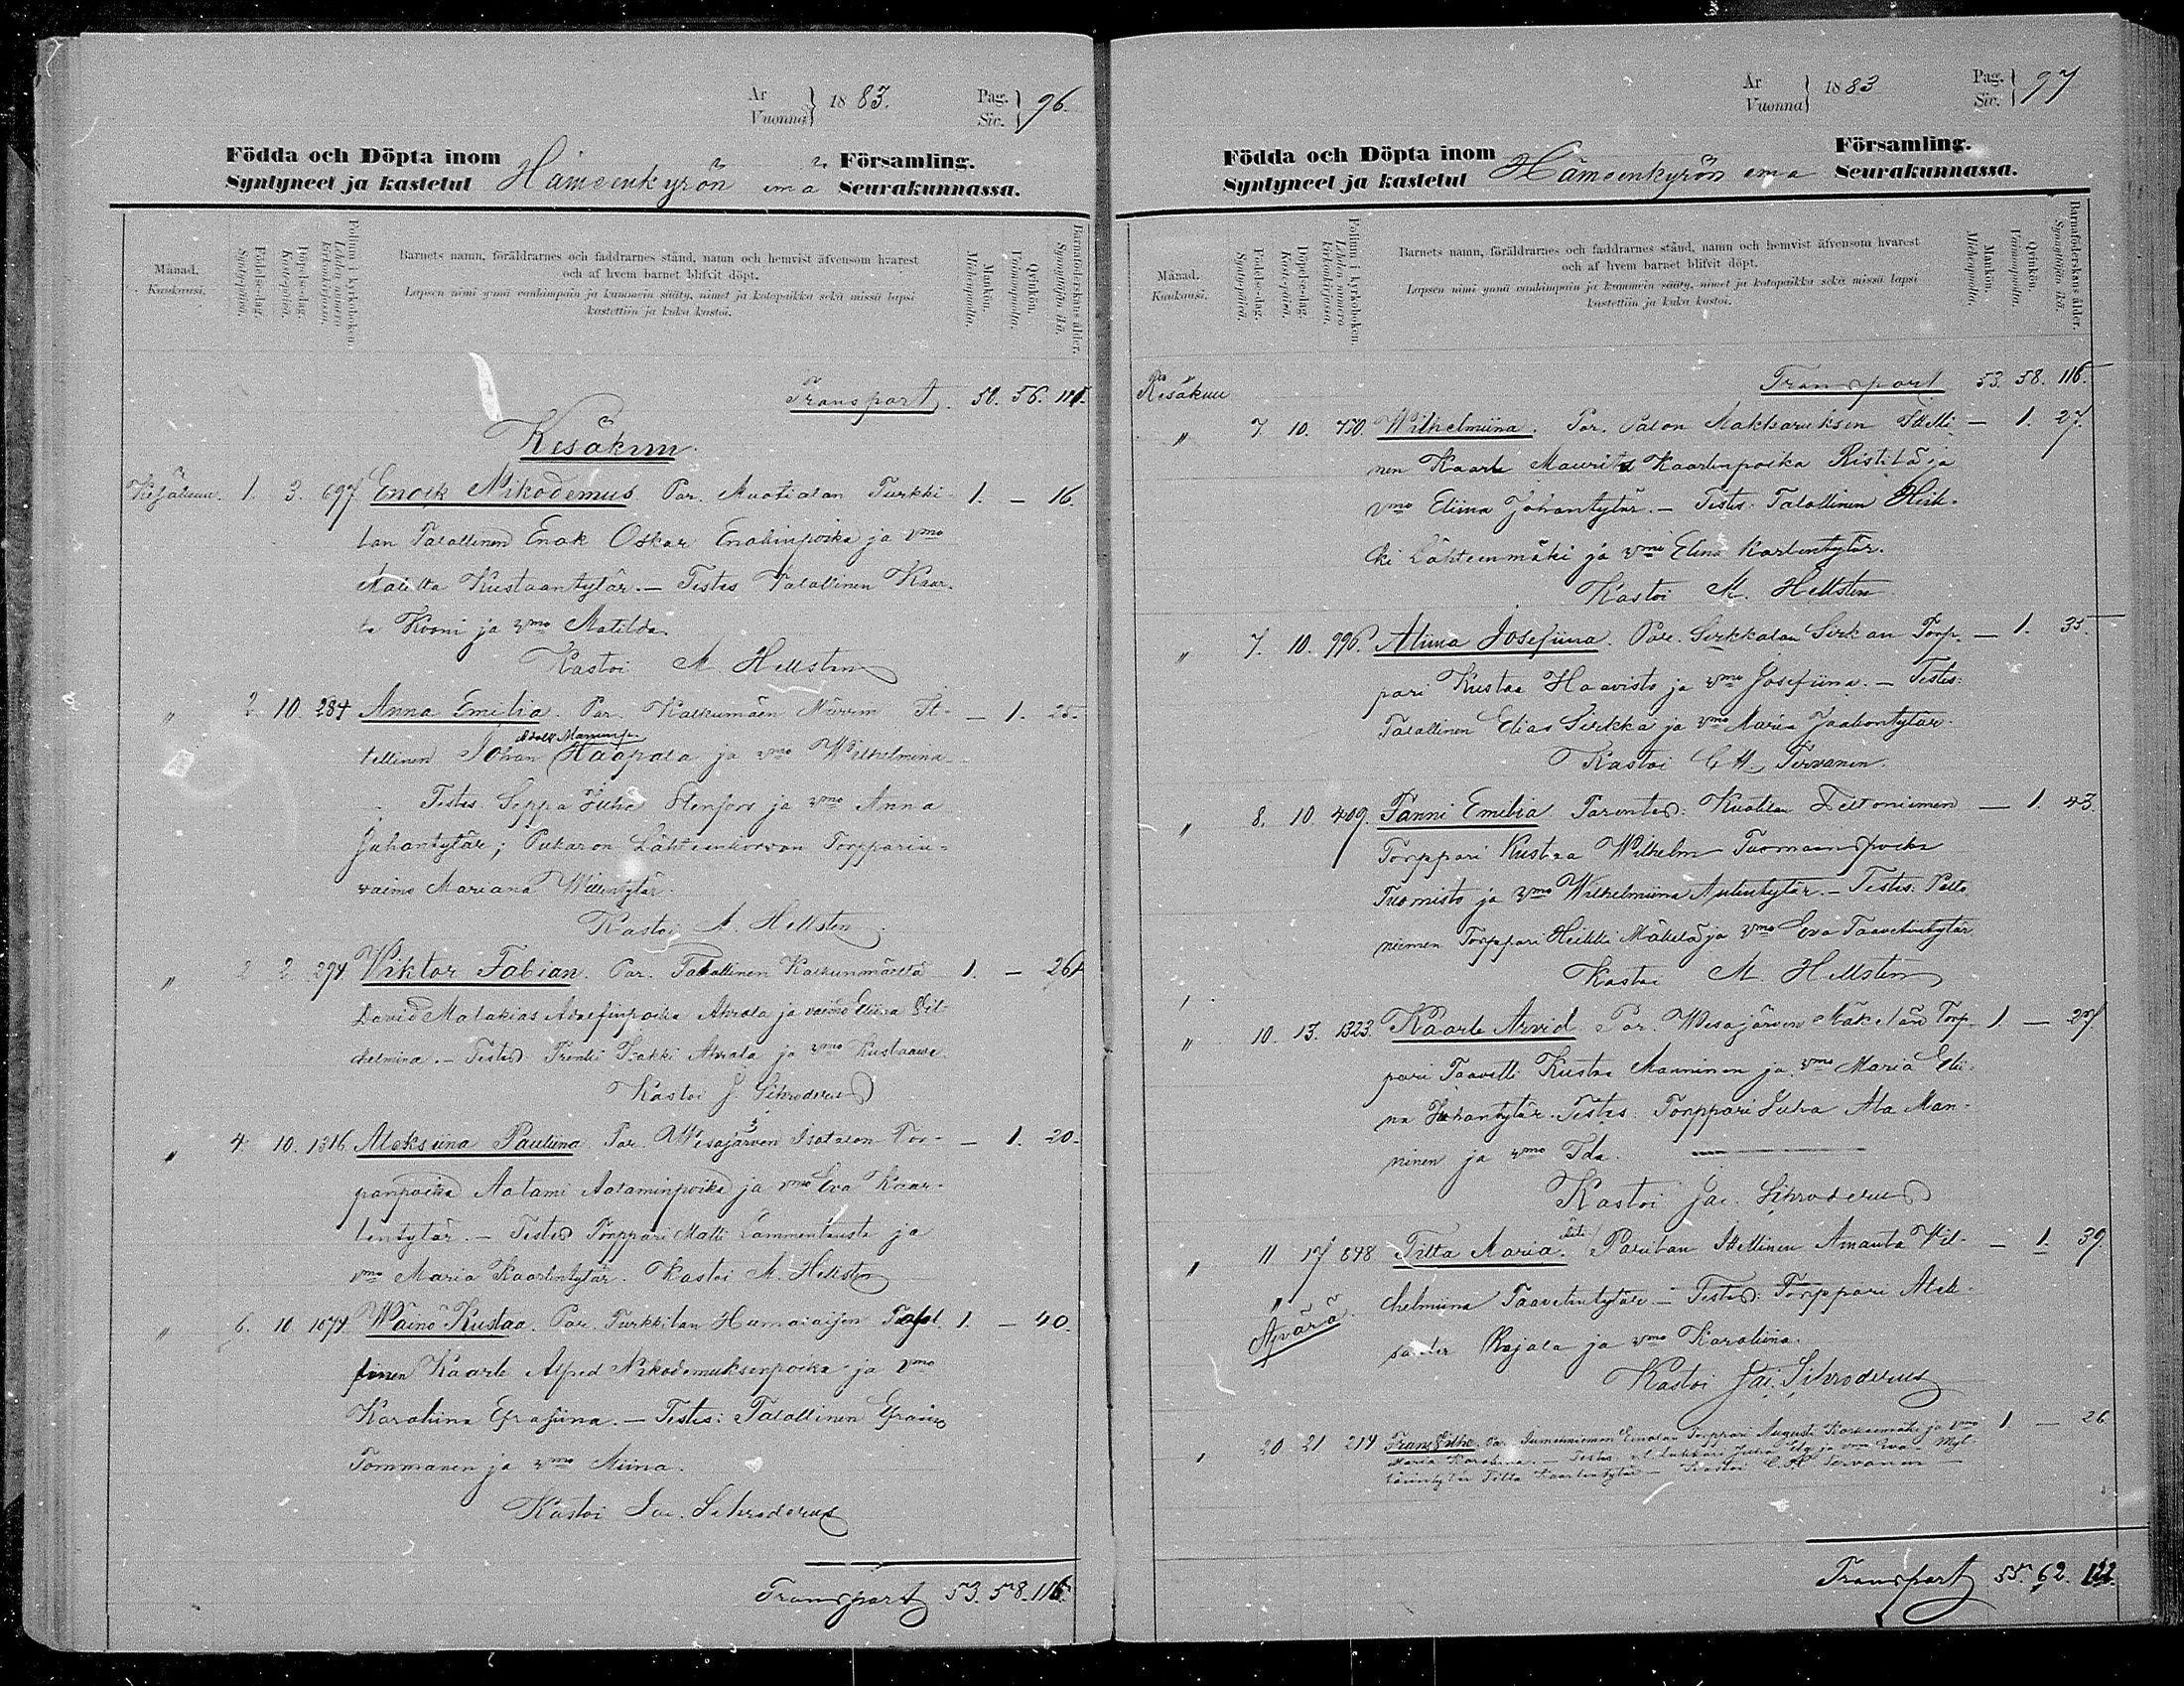 År
Vuonna } 1883. Pag.
Siv. } 96.
Födda och Döpta inom Hämeenkyrön Församling.
Syntyneet ja kastetut emä Seurakunnassa.
Månad.
Kuukausi.
Födelse-dag.
Syntypäivä.
Döpelse-dag.
Kastepäivä.
Folium i kyrkoboken.
Lehden numero kirkonkirjassa.
Barnets namn, föräldrarnes och faddrarnes stånd, namn och hemvist äfvensom hvarest
och af hvem barnet blifvit döpt.
Lapsen nimi ynnä vanhimpain ja kummein sääty, nimet ja kotopaikka sekä missä lapsi
kastettiin ja kuka kastoi.
Mankön.
Miehenpuolia.
Qvinkön.
Vaimonpuolia.
Barnaföderskans ålder.
Synnyttäjän ikä.
Transport. 50. 56.
Kesäkuu.
Kesäkuu. 1. 3. 697 Enok Nikodemus Par. Muotialan Turkki- 1. — 16.
lan Talallinen Enok Oskar Enokinpoika ja vmo
Kustaantytär. — Testes Talallinen Kaar-
lo Kooni ja vmo Matilda.
Kastoi M. Hellsten
" 2. 10. 284 Anna Emelia. Par. Kalkunmäen It- — 1. 25.
tellinen Johan Haapala ja vmo Wilhelmina
Testes Seppä Juho Stenfors ja vmo Anna
Juhantytär; Lähteenkorvan Torpparin-
vaimo Mariana Willentytär.
Kastoi M. Hellsten
" 2 2 294 Viktor Fabian. Par. Talallinen Kalkunmäeltä 1. — 26
David Malakias Adolfinpoika Ahrola ja vaimo Eliina Vil-
helmina. — Testes Trenki Ahrola ja vmo Kustaava
Kastoi J. Schroderus
" 4. 10. 1316 Aleksiina Pauliina Par. Wesajärven Isotalon Tor- — 1. 20.
panpoika Aatami Aataminpoika ja vmo Eva Kaar-
lentytär. — Testes Torppari Matti Lammentausta ja
vmo Maria Kaarlentytär. Kastoi M. Hellsten
" 6. 10. 1074 Wäinö Kustaa. Par. Turkkilan Humaiaijen Talal- 1. — 40.
linen Kaarle Alfred Nikodemuksenpoika ja vmo
Karoliina Efrosiina. — Testes: Talallinen Efraim
Tommanen ja vmo Miina.
Kastoi Jac. Schroderus
Transport 53. 58. 116.
År
Vuonna } 1883 Pag.
Siv. } 97
Födda och Döpta inom Hämeenkyrön Församling.
Syntyneet ja kastetut emä Seurakunnassa.
Månad.
Kuukausi.
Födelse-dag.
Syntypäivä.
Döpelse-dag.
Kastepäivä.
Folium i kyrkoboken.
Lehden numero kirkonkirjassa.
Barnets namn, föräldrarnes och faddrarnes stånd, namn och hemvist äfvensom hvarest
och af hvem barnet blifvit döpt.
Lapsen nimi ynnä vanhimpain ja kummein sääty, nimet ja kotopaikka sekä missä lapsi
kastettiin ja kuka kastoi.
Mankön.
Miehenpuolia.
Qvinkön.
Vaimonpuolia.
Barnaföderskans ålder.
Synnyttäjän ikä.
Kesäkuu Transport 53. 58. 116.
" 7. 10. 770. Wilhelmiina. Par. Palon Makkaruksen Itelli- — 1. 27.
nen Kaarle Maurits Kaarlenpoika Ristilä ja
vmo Eliina Johantytär. — Testes: Talallinen Heik-
ki Lähteenmäki ja vmo Elina Karlentytär.
Kastoi M. Hellsten
" 7. 10. 996. Aliina Josefiina. Par. Sirkkalan Sirkan Torp- — 1. 35.
pari Kustaa Haavisto ja vmo Josefiina. — Testes:
Talallinen Elias Sirkka ja vmo Maria Jaakontytär.
Kastoi C. H. Tervanen.
" 8. 10. 409. Fanni Emilia Parentes: Peltoniemen — 1. 43.
Torppari Kustaa Wilhelm Tuomaanpoika
Tuomisto ja vmo Wilhelmiina Antintytär. — Testes: Pelto-
niemen Torppari Heikki Mäkelä ja vmo Eva Taavetintytär
Kastoi M. Hellsten
" 10. 13. 1323. Kaarle Arvid. Par. Wesajärven Mäkelän Torp- 1. — 27
pari Taavetti Kustaa Manninen ja vmo Maria Elii-
na Juhantytär. Testes: Torppari Juha Ala Man-
ninen ja vmo Ida.
Kastoi Jac. Schroderus
" 11 17 848 Tilta Maria. Äiti Parilan Itellinen Amanta Vil- — 1. 39.
" Äpärä. helmiina Taavetintytär — Testes: Torppari Alek-
santer Rajala ja vmo Karoliina.
Kastoi Jac. Schroderus
" 20 21 214 Frans Vilho. Par. Torppari Augusti Koskenmäki ja vmo 1 — 26
Maria Karoliina. — Testes: Juha Elg ja vmo Eva — Myl-
lärintytär Tilta Kaarlentytär — Kastoi C. H. Tervanen —
Transport 55. 62. 122.